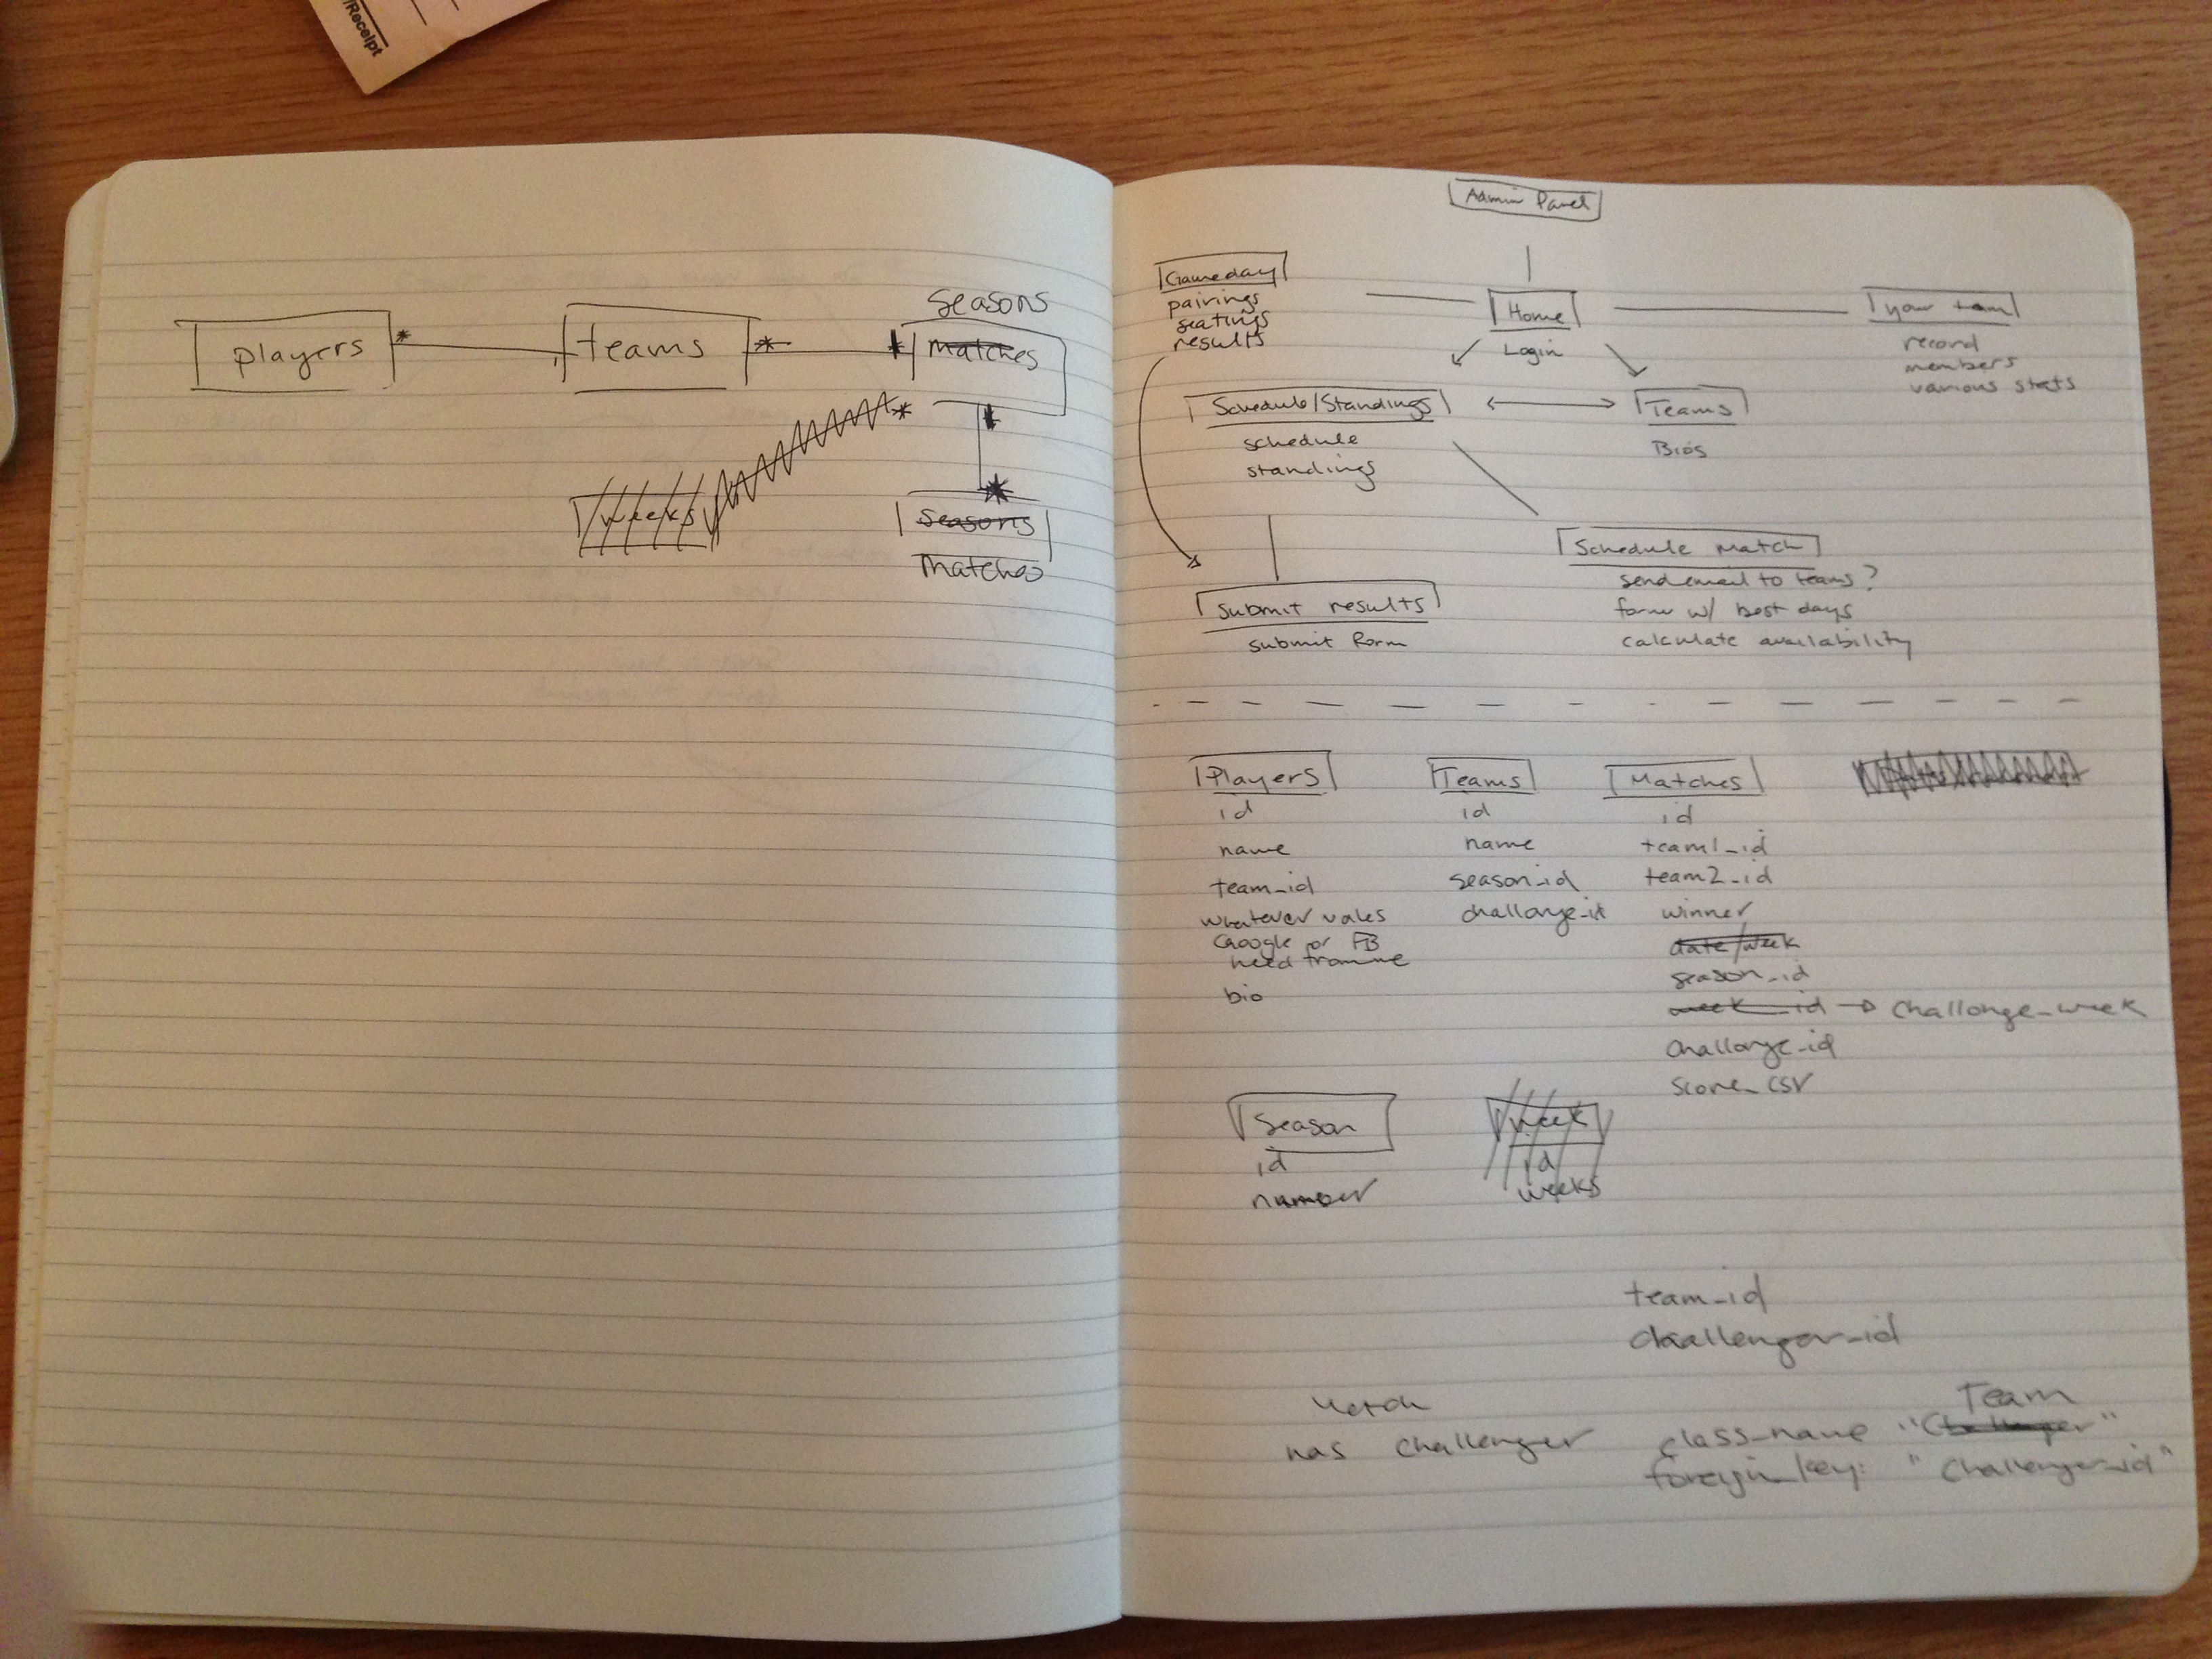 /Receipt
Seasons
players
teams
matches
weeks
seasons
matches
Admin Panel
Gameday
pairings
seatings
results
Home
Login
your team
record
members
various stats
Schedule/Standings
schedule
standings
Teams
Bios
Schedule Match
send email to teams?
form w/ best days
calculate availability
submit results
submit form
Players
id
name
team_id
whatever vales
Google or FB
need from me
bio
Teams
id
name
season_id
challonge_id
Matches
id
team1_id
team2_id
winner
date/week
season_id
week_id → challonge_week
challonge_id
score_csv
Season
id
number
Week
id
weeks
team_id
challenger_id
has challenger
Team
class_name "Challenger"
foreign_key: "challenger_id"